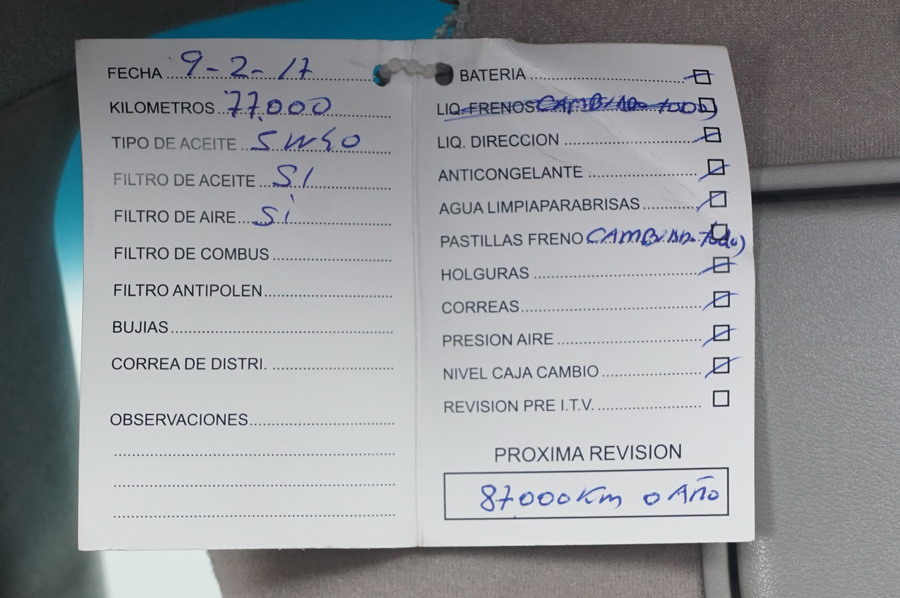 FECHA 9-2-17
KILOMETROS 77.000
TIPO DE ACEITE 5W40
FILTRO DE ACEITE SI
FILTRO DE AIRE Si
FILTRO DE COMBUS
FILTRO ANTIPOLEN
BUJIAS
CORREA DE DISTRI.
OBSERVACIONES
BATERIA
LIQ. FRENOS CAMBIADO TODO)
LIQ. DIRECCION
ANTICONGELANTE
AGUA LIMPIAPARABRISAS
PASTILLAS FRENO CAMBIADA Todo)
HOLGURAS
CORREAS
PRESION AIRE
NIVEL CAJA CAMBIO
REVISION PRE I.T.V.
PROXIMA REVISION
87000 Km o Año